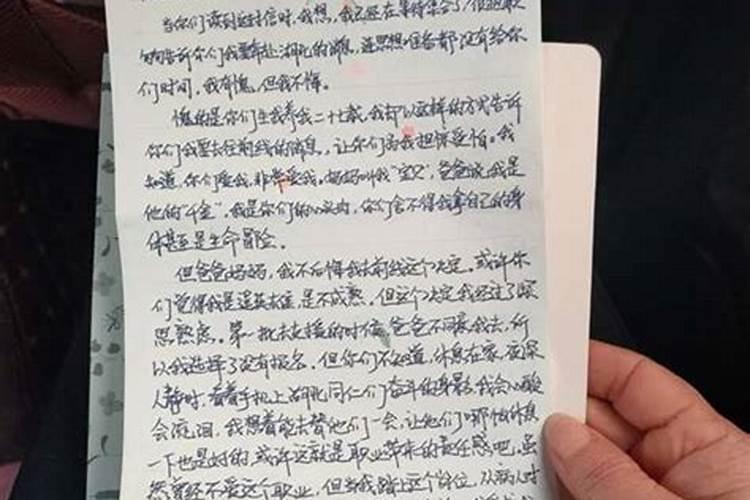 当你们读到这封信时,我想,我已经在等待集合了,很抱歉
匆匆告诉你们我要奔赴湖北的消息,连思想准备都没有给你
们时间,我有愧,但我不悔。
愧的是你们生我养我二十七载,我却以这样的方式告诉
你们我要去往前线的消息,让你们为我担惊受怕。我
知道,你们爱我,非常爱我。妈妈叫我“宝贝”,爸爸说我是
他的“千金”,我是你们的心头肉,你们舍不得我拿自己的身
体甚至是生命冒险。
但爸爸妈妈,我不后悔我去前线这个决定。或许你
们觉得我是逞英雄,是不成熟,但这个决定我经过了深
思熟虑。第一批去支援的时候,爸爸不同意我去,所
以我选择了没有报名。但你们不知道,休息在家,夜深
人静时,看着手机上湖北同仁们奋斗的身影,我会心酸
会流泪,我想着能去替他们一会,让他们哪怕休息
一下也是好的,或许这就是职业带来的责任感吧,虽
然曾经不爱这个职业,但当我踏上这个岗位,从病人才